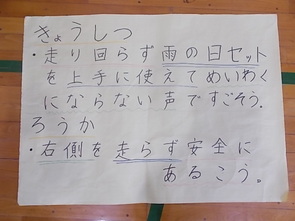 きょうしつ
・走り回らず雨の日セット
を上手に使えてめいわく
にならない声ですごそう。
ろうか
・右側を走らず安全に
あるこう。